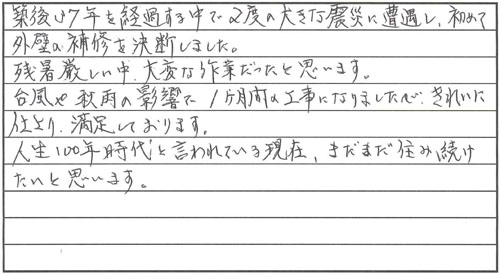 築後17年を経過する中で2度の大きな震災に遭遇し、初めて
外壁の補修を決断しました。
残暑厳しい中、大変な作業だったと思います。
台風や秋雨の影響で1ヶ月間の工事になりましたが、きれいに
仕上り、満足しております。
人生100年時代と言われている現在、まだまだ住み続け
たいと思います。